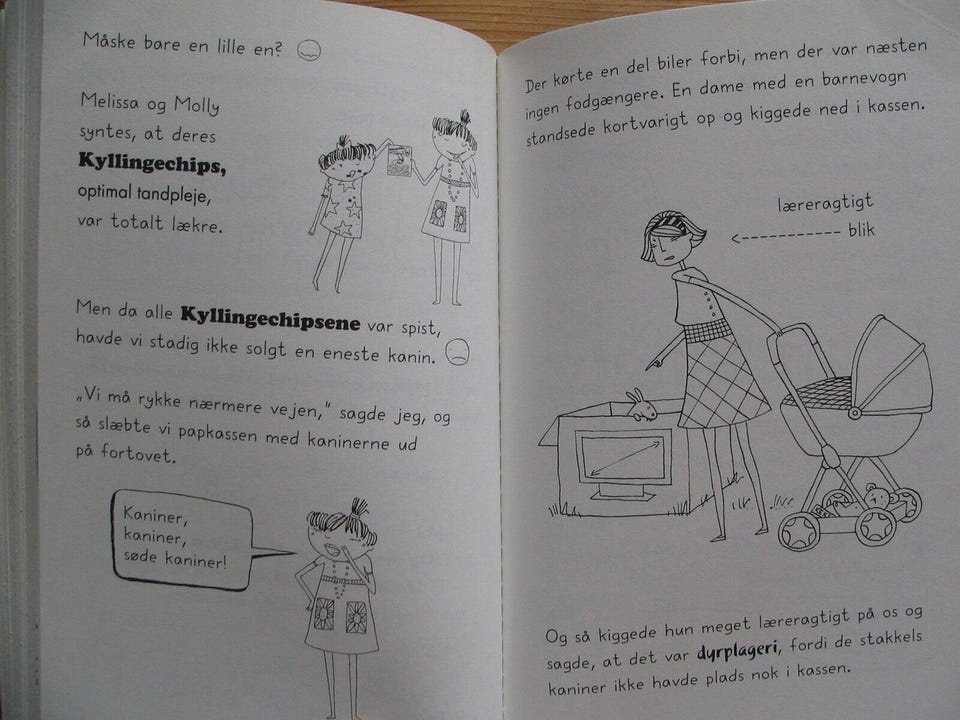 Måske bare en lille en?
Melissa og Molly
syntes, at deres
Kyllingechips,
optimal tandpleje,
var totalt lækre.
Men da alle Kyllingechipsene var spist,
havde vi stadig ikke solgt en eneste kanin.
„Vi må rykke nærmere vejen,” sagde jeg, og
så slæbte vi papkassen med kaninerne ud
på fortovet.
Kaniner,
kaniner,
søde kaniner!
Der kørte en del biler forbi, men der var næsten
ingen fodgængere. En dame med en barnevogn
standsede kortvarigt op og kiggede ned i kassen.
læreragtigt
blik
Og så kiggede hun meget læreragtigt på os og
sagde, at det var dyrplageri, fordi de stakkels
kaniner ikke havde plads nok i kassen.